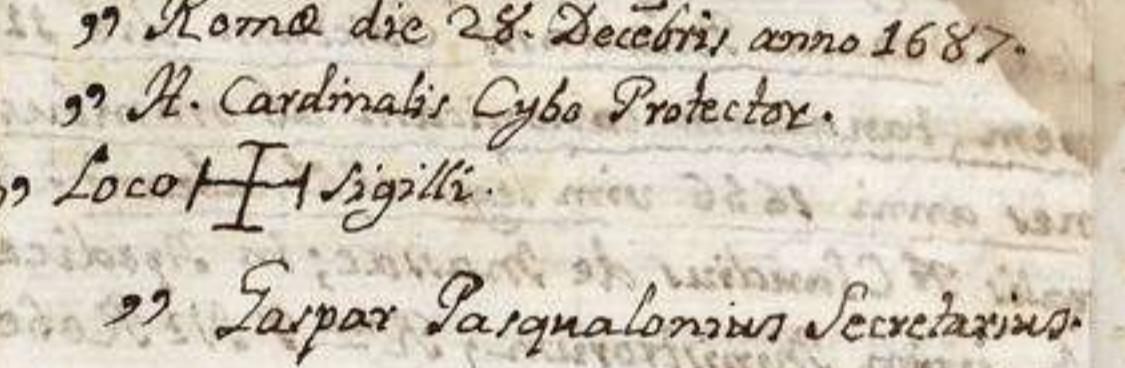 ” Romæ die 28. Decēbris anno 1687.
” A. Cardinalis Cybo Protector.
” Loco ✠ sigilli.
” Gaspar Pasqualonius Secretarius.